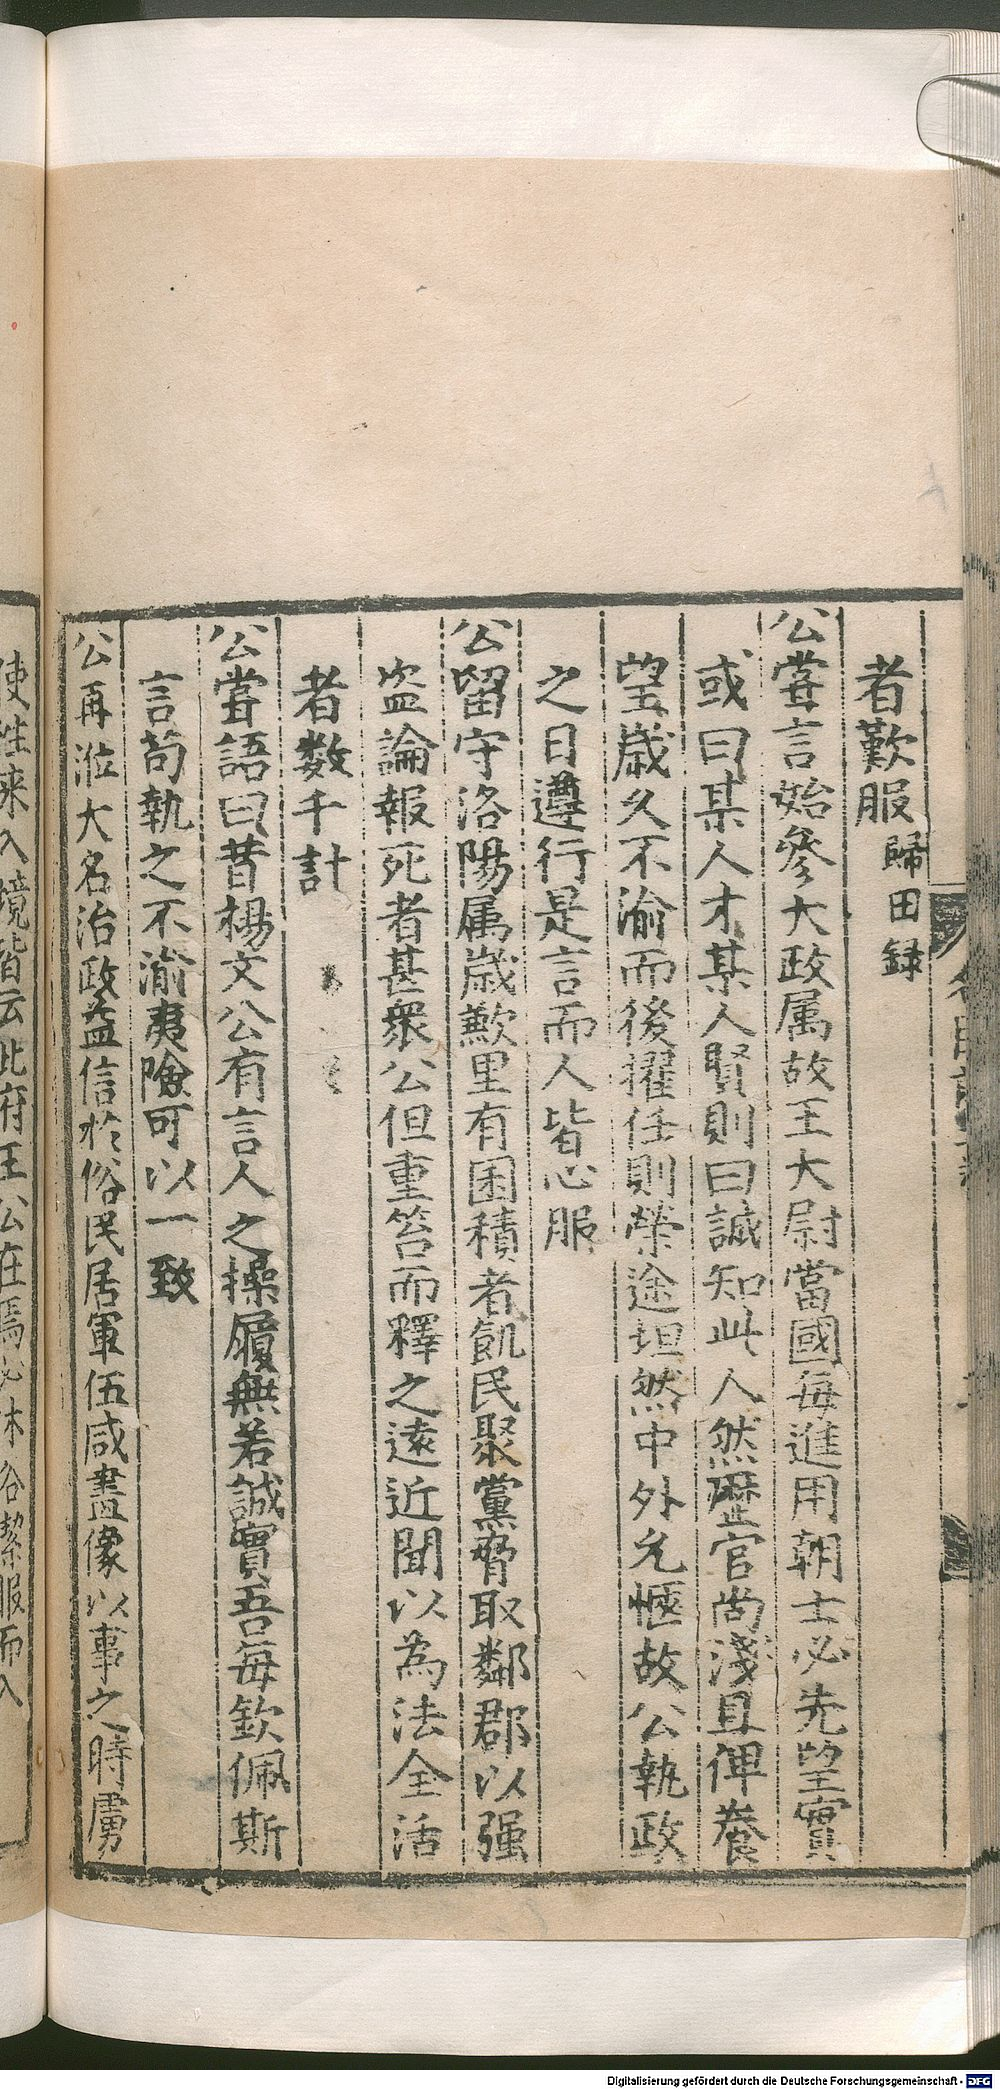 者歎服歸田録
公甞言始參大政属故王大尉當國每進用朝士必先望實
或曰某人才某人賢則曰誠知此人然歷官尚淺且俾養
望歳久不渝而後擢任則榮途坦然中外允愜故公執政
之日遵行是言而人皆心服
公留守洛陽属歳歉里有囷積者飢民聚黨脅取鄰郡以强
盗論報死者甚衆公但重笞而釋之遠近聞以為法全活
者数千計
公甞語曰昔楊文公有言人之操履無若誠實吾每欽佩斯
言苟執之不渝夷險可以一致
公再涖大名治政益信於俗民居軍伍咸畫像以事之時虜
使往来入境皆云此府王公在焉必沐浴潔服而入
Digitalisierung gefördert durch die Deutsche Forschungsgemeinschaft - DFG